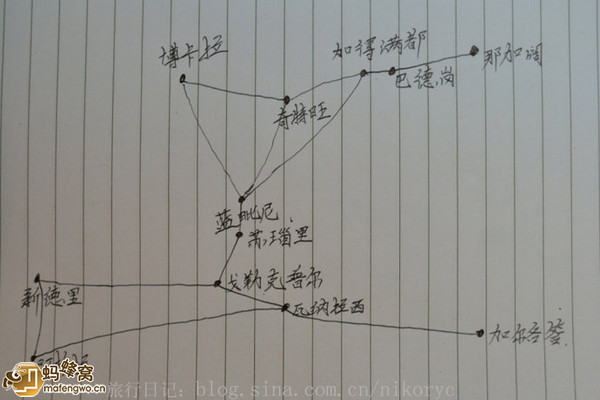 博卡拉
加得满都
那加阔
巴德岗
奇特旺
蓝毗尼
苏瑙里
戈勒克普尔
新德里
瓦纳拉西
加尔各答
蚂蜂窝
mafengwo.cn
旅行日记: blog.sina.com.cn/nikoryc